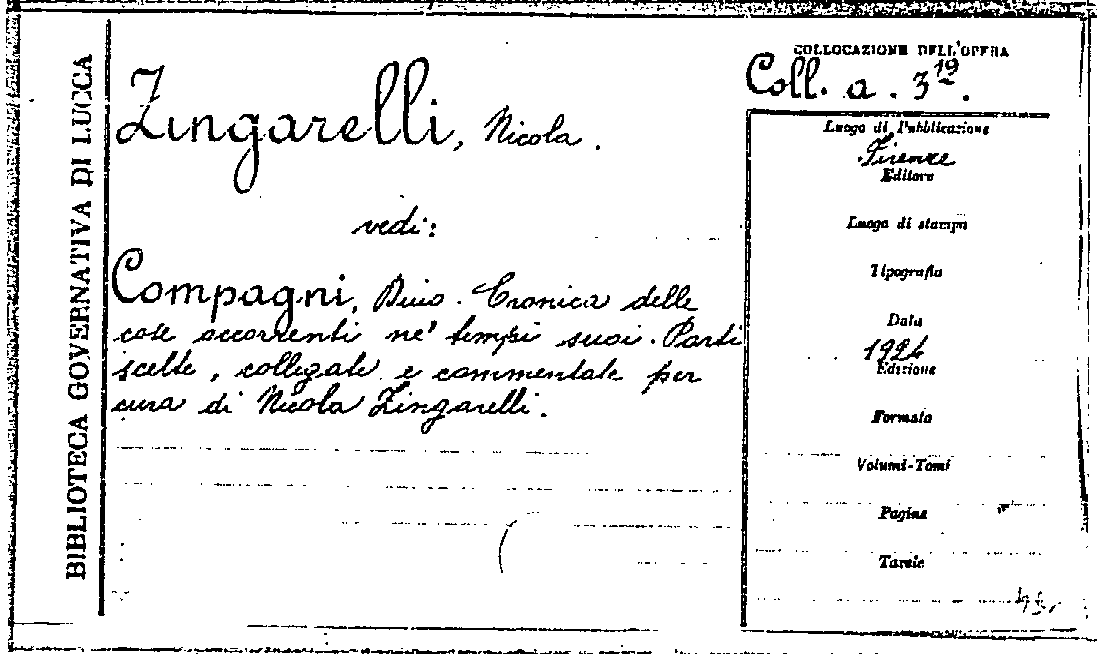 BIBLIOTECA GOVERNATIVA DI LUCCA
Zingarelli, Nicola.
vedi:
Compagni, Dino. Cronica delle
cose occorrenti ne' tempi suoi. Parti
scelte, collegate e commentate per
cura di Nicola Zingarelli.
COLLOCAZIONE DELL'OPERA
Coll. a. 3 19.
Luogo di Pubblicazione
Firenze
Editore
Luogo di stampa
Tipografia
Data
1924
Edizione
Formato
Volumi-Tomi
Pagine
Tavole